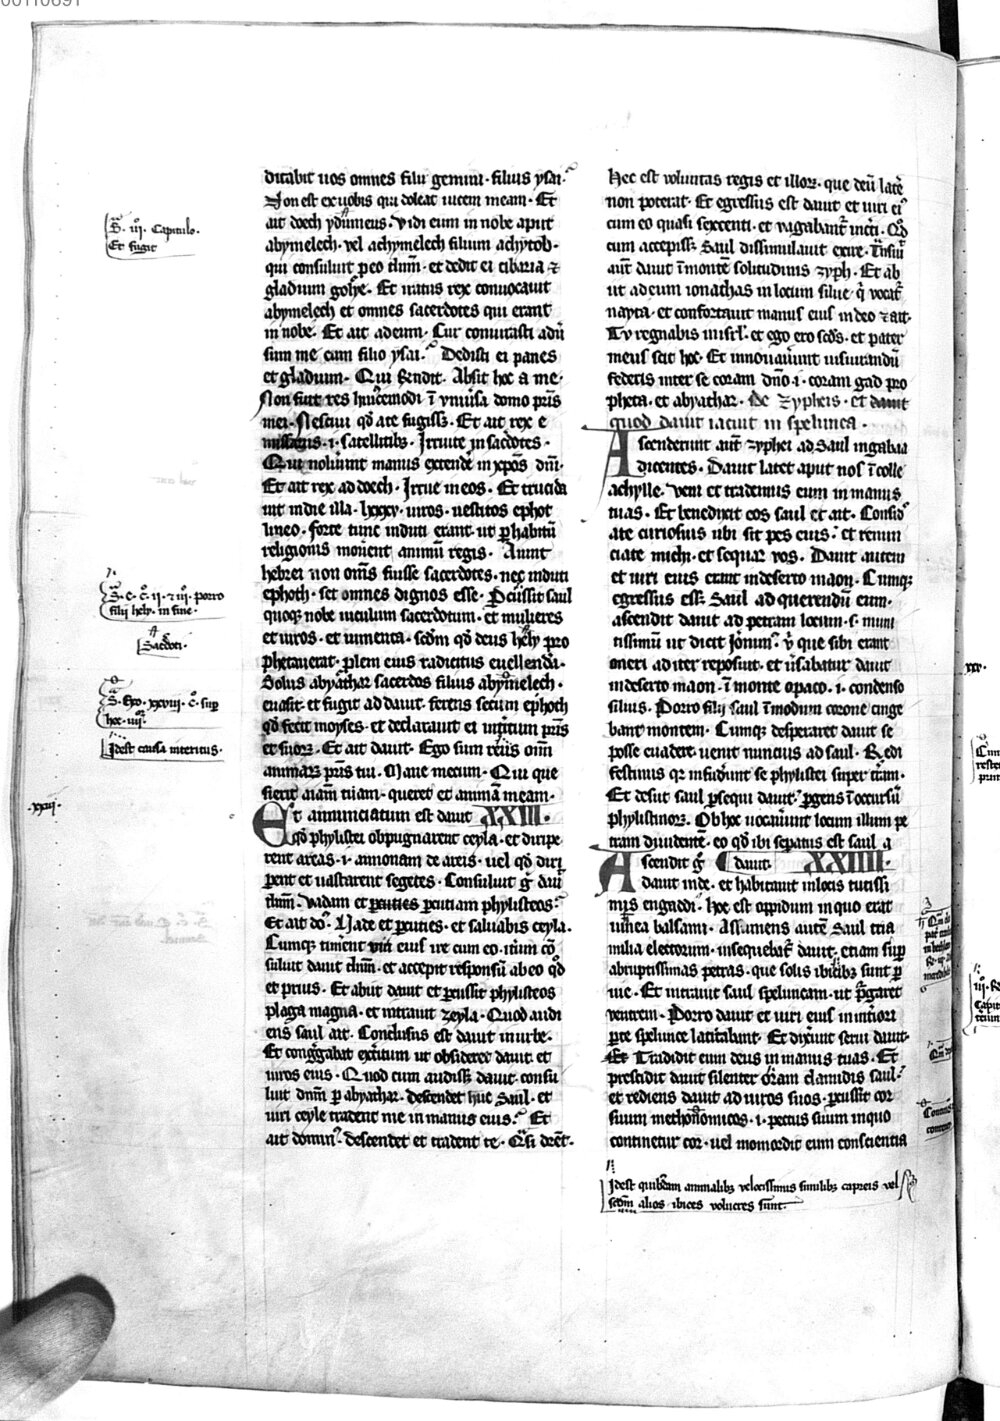 ditabit uos omnes filii gemini · filius ysai ·
Non est ex uobis qui doleat uicem meam · Et
ait doech ydumeus · Vidi eum in nobe aput
abymelech · vel achymelech filium achytob ·
qui consuluit p eo dnm̄ · et dedit ei cibaria ⁊
gladium golye · Et iratus rex conuocauit
abymelech et omnes sacerdotes qui erant
in nobe · Et ait ad eum · Cur coniurasti adũ
sum me cum filio ysai · Dedisti ei panes
et gladium · Qui r̃ndit · Absit hoc a me ·
Non fuit res huicemodi ĩ vniũsa domo pr̃is
mei · Nesciui qđ a te fugiss; · Et ait rex e
missariis · i · satellitib; · Irruite in sac̃dotes ·
Qui noluer̃unt manus extende in xp̃os dn̄i ·
Et ait rex ad doech · Irrue in eos · Et trucida
uit in die illa · lxxxv · uiros · uestitos ephot
lineo · forte tunc induti erant · ut p habitũ
religionis mouẽent animũ regis · Aiunt
hebrei non om̃s fuisse sacerdotes · nec induti
ephoth · set omnes dignos esse · Pcussit saul
quoq; nobe uiculum sacerdotum · et mulieres
et uiros · et iumenta · scđm qđ deus hely pro
phetauerat · plem eius radicitus euellendã ·
Solus abyathar sacerdos filius abymelech ·
euasit · et fugit ad dauit · ferens secum ephoth
qđ fecit moyses · et declarauit ei int̃itum pr̃is
et suoꝝ · Et ait dauit · Ego sum reus om̃i
animaꝝ pr̃is tui · Mane mecum · Qui que
sierit aĩam tuam · queret et animã meam ·
Et annunciatum est dauit XXIII ·
qđ phylistei obpugnarent ceyla · et diripe
rent areas · i · annonam de areis · uel qđ diri
perent et uastarent segetes · Consuluit g̃ dauit
dnm̄ · Vadam et percuties percutiam phylisteos ·
Et ait do · Vade et pcuties · et saluabis ceyla ·
Cumq; timẽent viri eius ire cum eo · itm̃ cõ
suluit dauit dnm̄ · et accepit responsũ ab eo qđ
et prius · Et abiit dauit et pcussit phylisteos
plaga magna · et intrauit zeyla · Quod audi
ens saul ait · Conclusus est dauit in urbe ·
Et congg̃abat exc̃itum ut obsideret dauit et
uiros eius · Quod cum audiss; dauit · consu
luit dnm̄ p abyathar · descendet huc saul · et
uiri ceyle tradent me in manus eius · Et
ait dominꝰ · descendet et tradent te · Q̃si dr̃et ·
Hec est voluntas regis et illoꝝ · que deũ late͛
non poterat · Et egressus est dauit et uiri eiꝰ
cum eo quasi sexcenti · et uagabant͛ inc̃ti · Qđ
cum accepiss; Saul dissimulauit exire · T͛nsiuit
aũt dauit ĩ monte solitudinis zyph · Et ab
iit ad eum ionathas in locum silue · q̃ vocat͛
nayta · et confortauit manus eius in deo ⁊ ait ·
Tv regnabis in isrl̃ · et ego ero sc̃ds · et pater
meus scit hoc · Et innouauer̃unt iusiurandũ
federis inter se coram dn̄o · i · coram gad pro
pheta · et abyathar · De Zypheis · et dauit
quod dauit iacuit in spelunca ·
Ascenderunt aũt zyphei ad Saul in gabaa
dicentes · Dauit latet aput nos ĩ colle
achylle · veni et trademus eum in manus
tuas · Et benedixit eos saul et ait · Consid͛
ate curiosius ubi sit pes eius · et renun
ciate michi · et sequar vos · Dauit autem
et uiri eius erant in deserto maon · Cumq;
egressus ess; Saul ad querendũ eum ·
ascendit dauit ad petram locum · s · muni
tissimũ ut dicit Ionũm · ⁊ que sibi erant
oneri ad iter reposuit · et ũsabatur dauit
in deserto maon · ĩ monte opaco · i · condenso
siluis · Porro filii saul ĩ modum corone cinge
bant montem · Cumq; desperaret dauit se
posse euadere · uenit nuncius ad saul · Redi
festinus qr̃ infudr̃unt se phylistei super tr̃am ·
Et desiit saul psequi dauit · pgens ĩ occursũ
phylistinoꝝ · Ob hoc uocauer̃unt locum illum pe
tram diuidentẽ · eo qđ ibi sepatus est saul a
Ascendit g̃ dauit · XXIIII ·
dauit inde · et habitauit in locis tutissi
mis engaddi · hoc est oppidum in quo erat
uinea balsami · Assumens autẽ Saul tria
milia electorum · insequebat͛ dauit · etiam sup
abruptissimas petras · que solis ibicib; sunt p
uie · Et intrauit saul speluncam · ut p̃garet
ventrem · Porro dauit et uiri eius in int̃iori
pte spelunce latitabant · Et dixer̃unt serui dauit ·
Et Tradidit eum deus in manus tuas · Et
prescidit dauit silenter oram clamidis saul ·
et rediens dauit ad uiros suos · pcussit cor
suum methonomicos · i · pectus suum in quo
continetur cor · uel momordit eum conscientia
S̃ · iij · Capitulo ·
Et fugit
S̃ · c̃ · c̃ · ii · ⁊ iij · porro
filii hely · in fine ·
Sac̃doti ·
S̃ · Exo · xxviii · c̃ · sup
hoc · iiij ·
Idest causa interitus ·
· xxiii ·
Idest quibdam animalib; velocissimis similib; capreis vel
scđm alios ibices volucres sunt ·